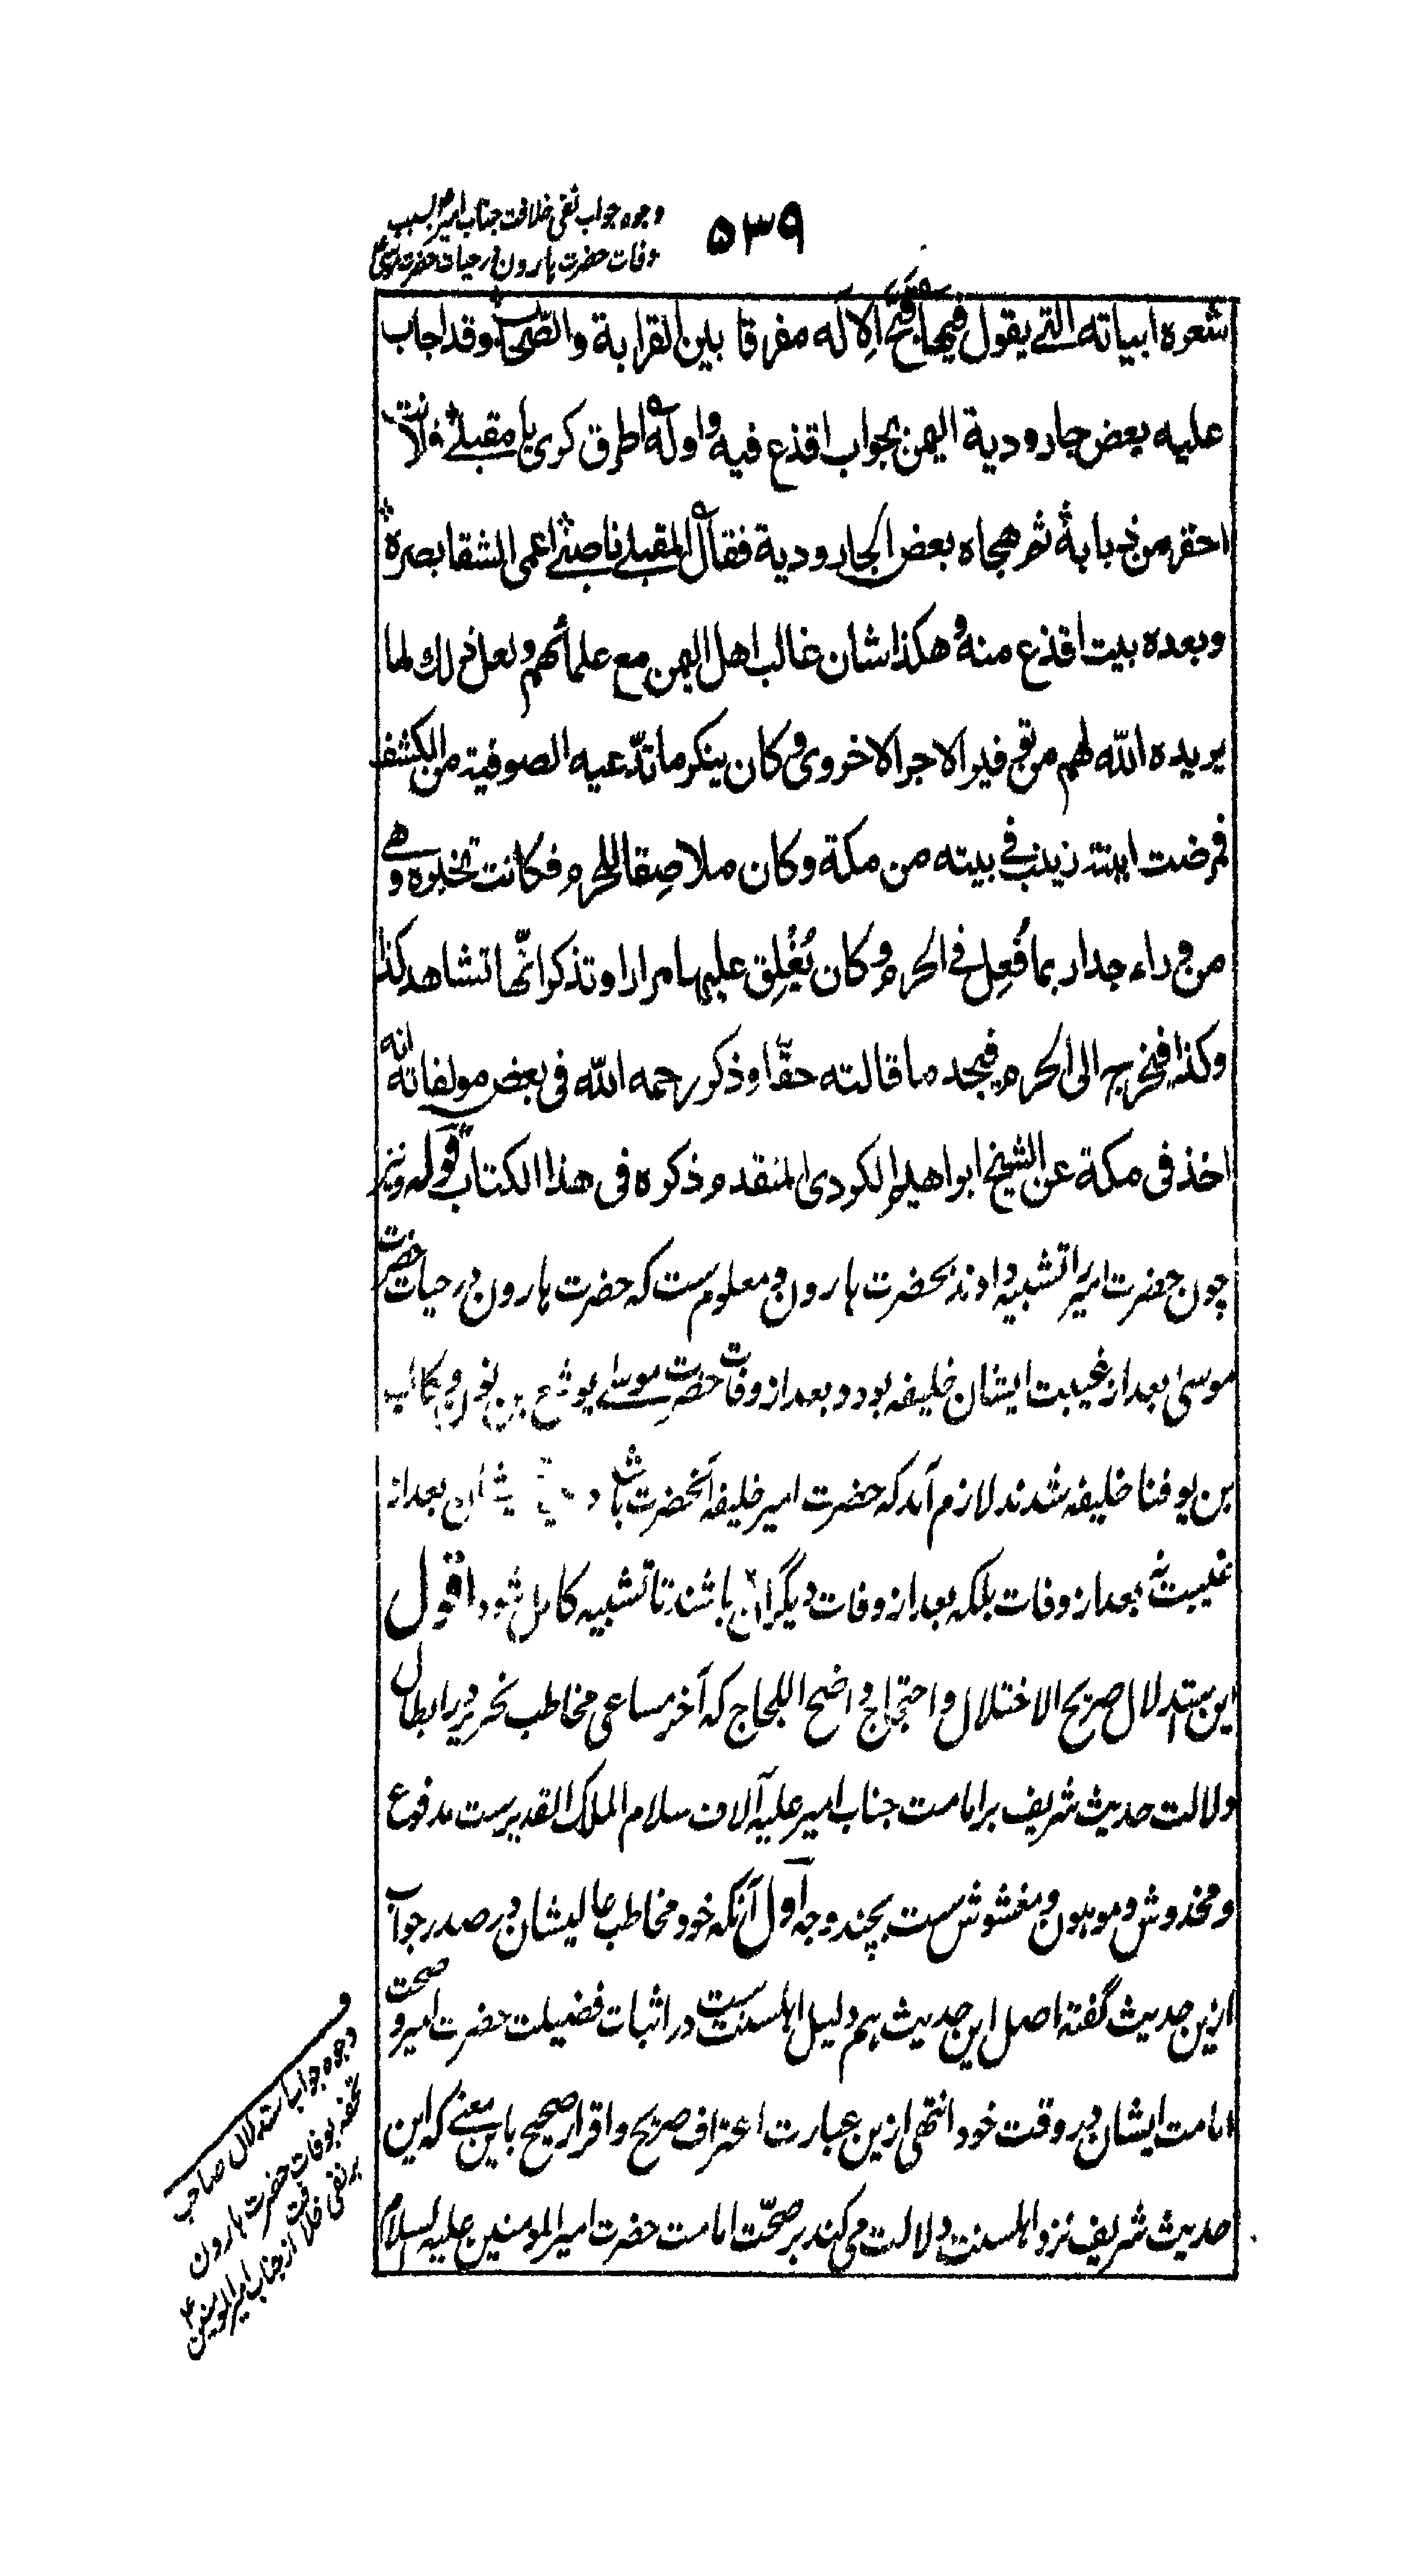 وجوه جواب نفی خلافت جناب امیرؑ بسبب
وفات حضرت هارون در حیات حضرت موسیؑ
۵۳۹
شعره ابیاته التی یقول فیها قبح الاله مفرقا بین القرابة والصحابه وقد اجاب
علیه بعض جارودیة الیمن بجواب اقذع فیه واوله اطرق کری یا مقبلی فلانت
احقر من ذبابة ثم هجاه بعض الجارودیة فقال المقبلی ناصبی اعمی الشقا بصره
وبعده بیت اقذع منه وهکذا شان غالب اهل الیمن مع علمائهم ولعل ذلک لما
یریده الله لهم من توفیر الاجر الاخروی وکان ینکر ما تدّعیه الصوفیة من الکشف
فمرضت ابنته زینب فی بیته من مکة وکان ملاصِقا للحرم فکانت تخبره وهی
من وراء جدار بما فُعِل فی الحرم وکان یُغْلِق علیها مرارا وتذکر انّها تشاهد کذا
وکذا فیخرج الی الحرم فیجد ما قالته حقّا وذکر رحمه الله فی بعض مولفاته انه
اخذ فی مکة عن الشیخ ابراهیم الکردی المتقدم ذکره فی هذا الکتاب قوله ونیز
چون حضرت امیر را تشبیه دادند بحضرت هارون و معلوم ست که حضرت هارون در حیات حضرت
موسی بعد از غیبت ایشان خلیفه بود و بعد از وفات حضرت موسی یوشع بن نون و کالب
بن یوفنا خلیفه شدند لازم آمد که حضرت امیر خلیفه آنحضرت باشد در حیات ایشان بعد از
غیبت نه بعد از وفات بلکه بعد از وفات دیگران باشند تا تشبیه کامل شود اقول
این استدلال صریح الاختلال و احتجاج واضح اللجاج که آخر مساعی مخاطب نحریر در ابطال
دلالت حدیث شریف بر امامت جناب امیر علیه آلاف سلام الملک القدیرست مدفوع
و مخدوش و موهون و مغشوش ست بچند وجه اول آنکه خود مخاطب عالیشان در صدر جواب
ازین حدیث گفته اصل این حدیث هم دلیل اهلسنت ست در اثبات فضیلت حضرت امیر و صحت
امامت ایشان در وقت خود انتهی ازین عبارت اعتراف صریح و اقرار صحیح باین معنی که این
حدیث شریف نزد اهلسنت دلالت می کند بر صحّت امامت حضرت امیرالمومنین علیه السلام
وجوه جواب استدلال صاحب
تحفه بوفات حضرت هارون
بر نفی خلافت از جناب امیرالمومنینؑ